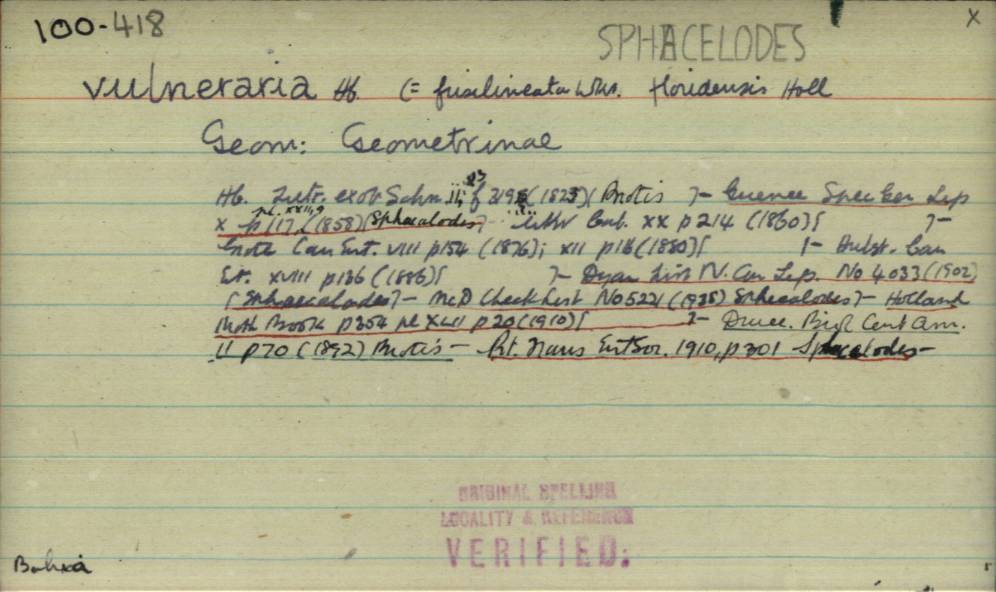 100-418
X
SPHACELODES
vulneraria Hb. (= fusilineata Wlk. floridensis Holl
Geom: Geometrinae
Hb. Zutr. exot Schm. 23 f 319 (1825) (Brotis )- Guenee Spec Gen Lep
pl. xxii, 9
X p 117, (1858) (Sphacalodes)- Ent. xx p 214 (1860) ( )-
Grote Can Ent. VIII p154 (1876); XII p (1880) ( )- Hulst. Can
Et. XVIII p (1886) ( )- Dyar List N. Am Lep. No 4033 (1902)
(Sphaecalodes)- McD Check List No (1938) Sphecalodes)- Holland
Moth Book p 354 pl XLII (1910) ( )- Druce. Biol Cent Am.
II p 70 (1892) Brotis - Pt. Trans Ent Soc. 1910, p 301 Sphacelodes -
ORIGINAL SPELLING
LOCALITY & REFERENCE
VERIFIED.
Bahia